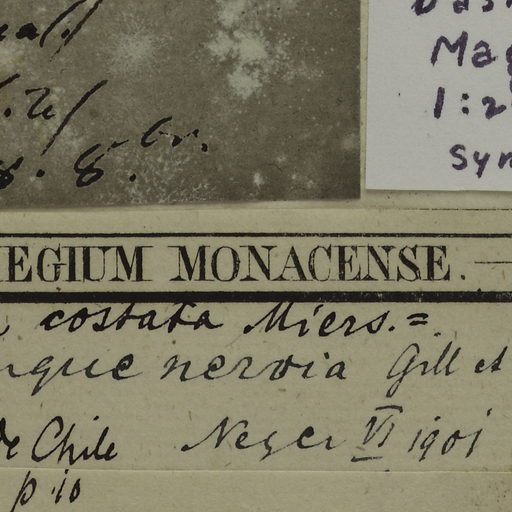 Mag
1:2
Syn
8. 8. br.
REGIUM MONACENSE.
costata Miers. =
nque nervia Gill et
de Chile Neger VI 1901
p. 10